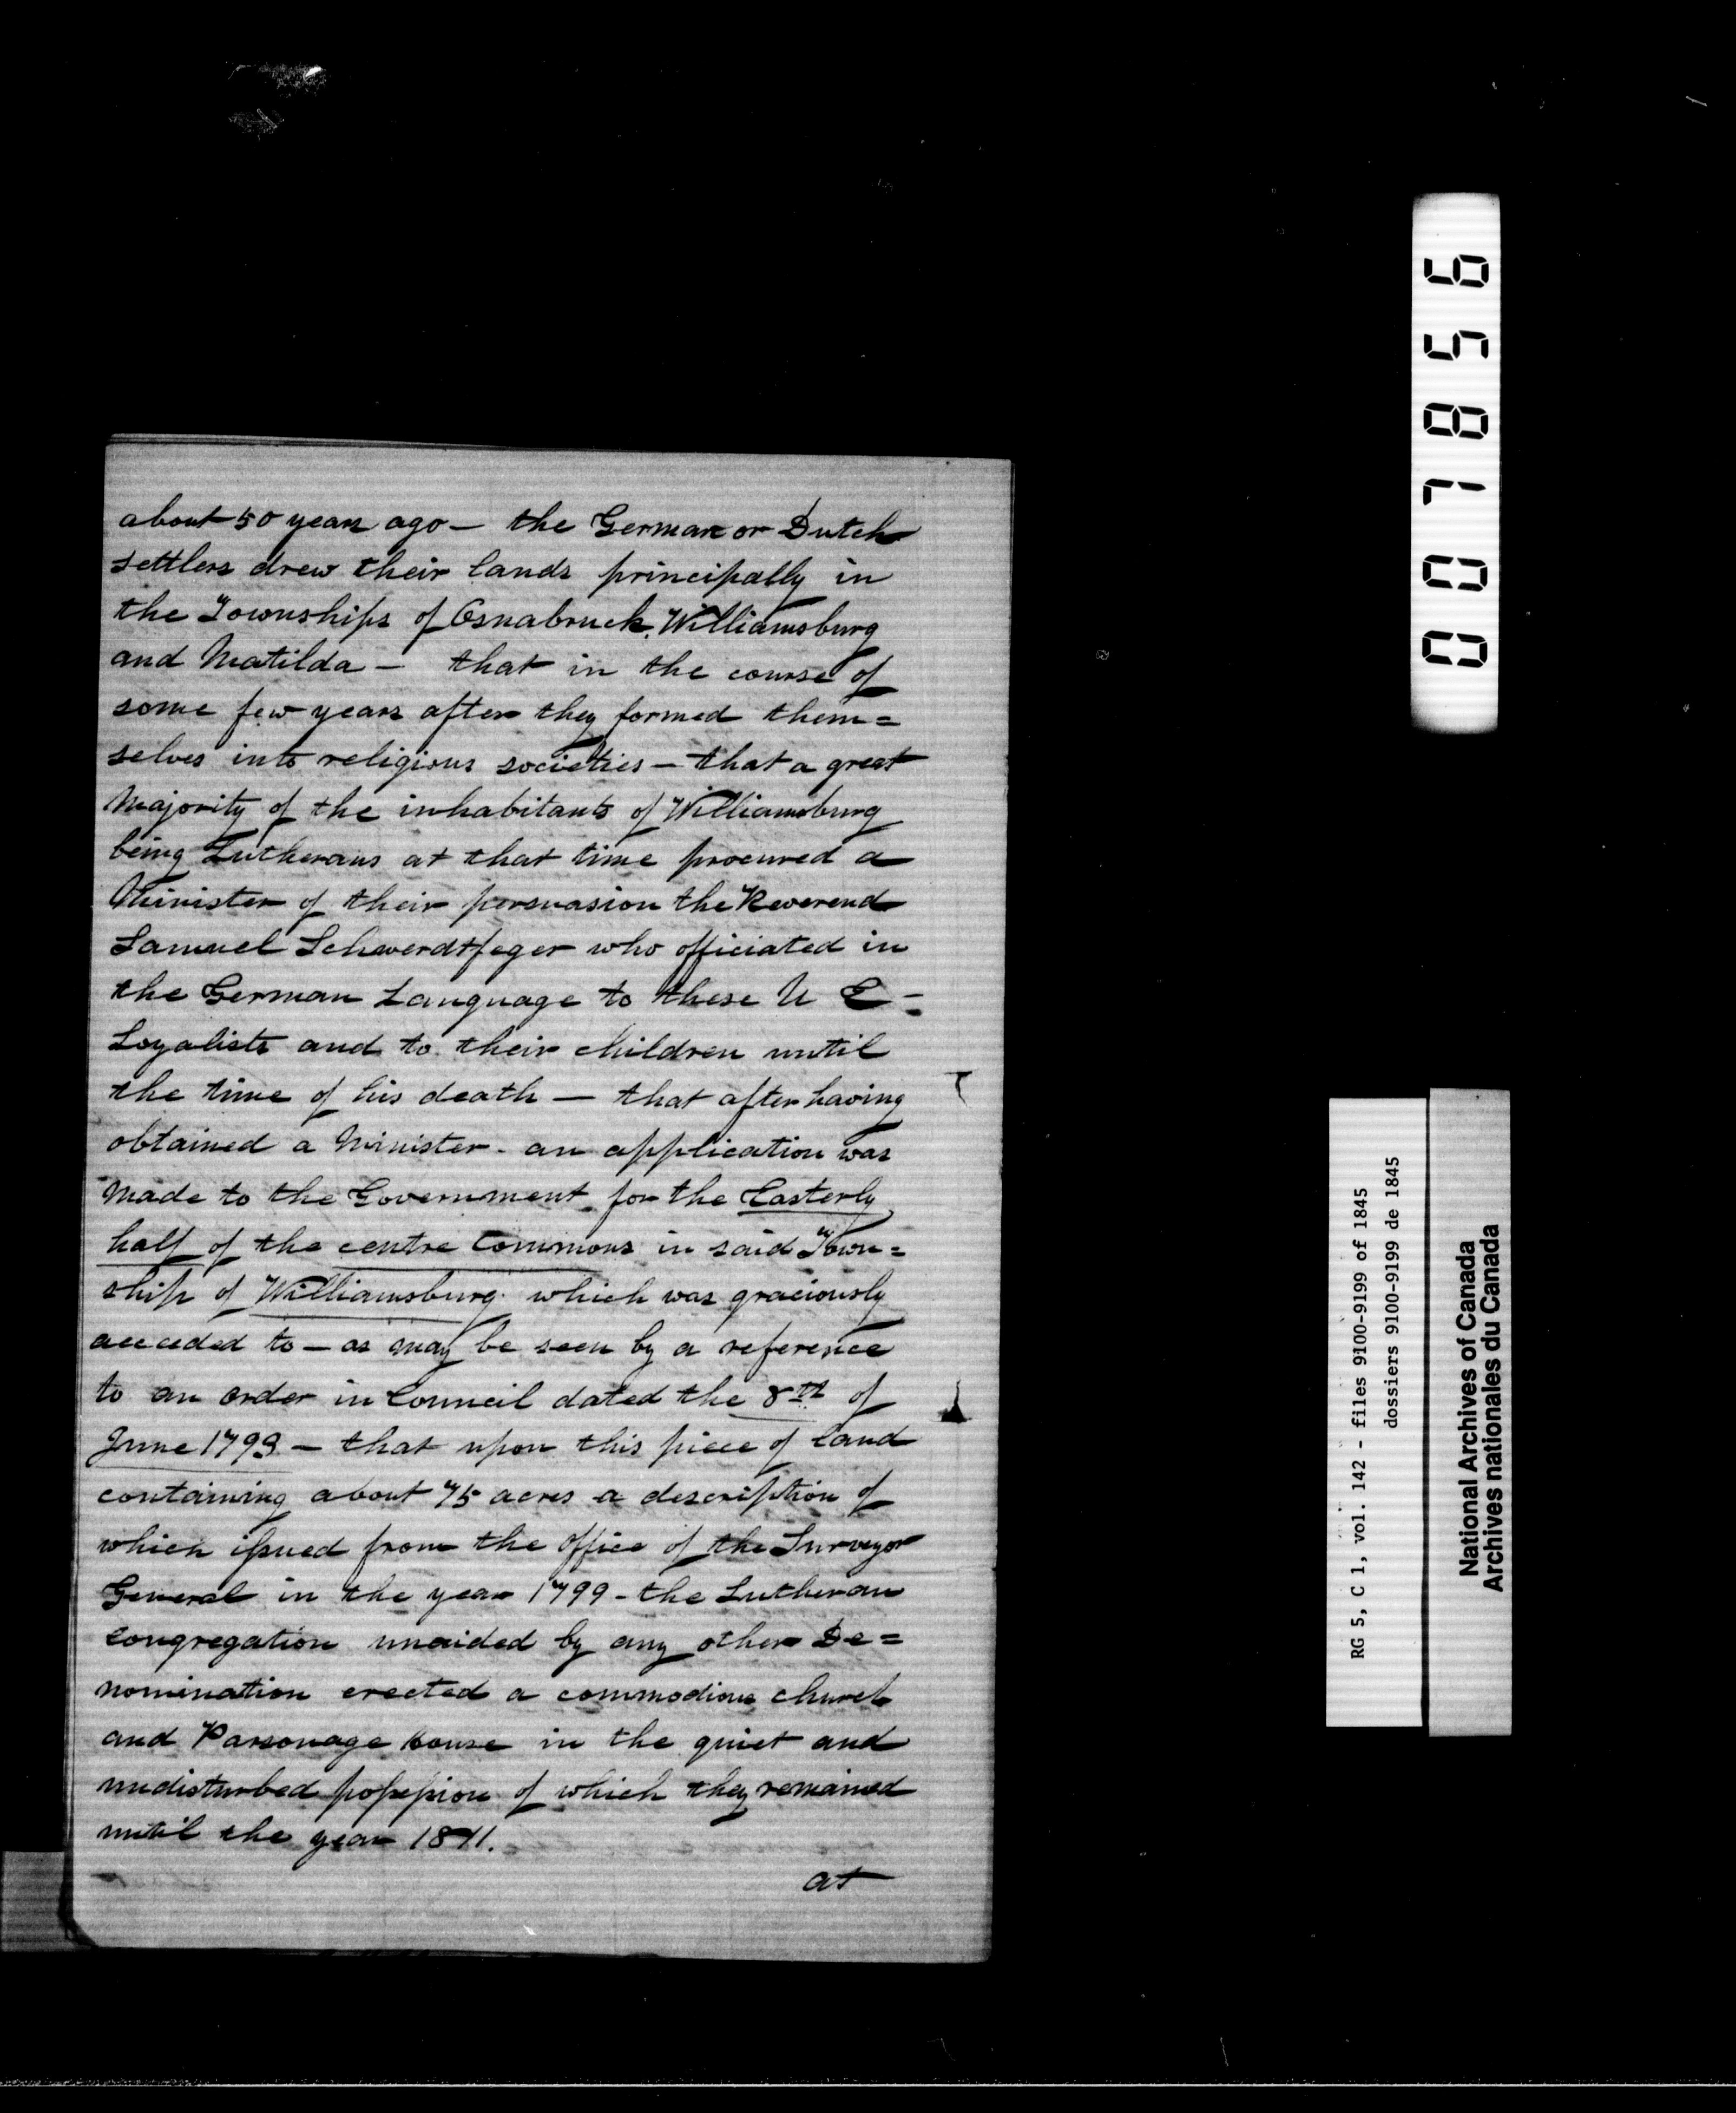 about 50 years ago — the German or Dutch
settlers drew their lands principally in
the Townships of Osnabruck, Williamsburg
and Matilda — that in the course of
some few years after they formed them=
selves into religious societies — that a great
Majority of the inhabitants of Williamsburg
being Lutherans at that time procured a
Minister of their persuasion the Reverend
Samuel Schwerdtfeger who officiated in
the German Language to these U E =
Loyalists and to their children until
the time of his death — that after having
obtained a Minister - an application was
Made to the Government for the Easterly
half of the centre Commons in said Town=
ship of Williamsburg which was graciously
acceded to — as may be seen by a reference
to an order in Council dated the 8th of
June 1793 — that upon this piece of land
containing about 75 acres a description of
which issued from the Office of the Surveyor
General in the year 1799 - the Lutheran
congregation unaided by any other De=
nomination erected a commodious church
and Parsonage house in the quiet and
undisturbed possession of which they remained
until the year 1811.
at
007856
RG 5, C 1, vol. 142 - files 9100-9199 of 1845
dossiers 9100-9199 de 1845
National Archives of Canada
Archives nationales du Canada